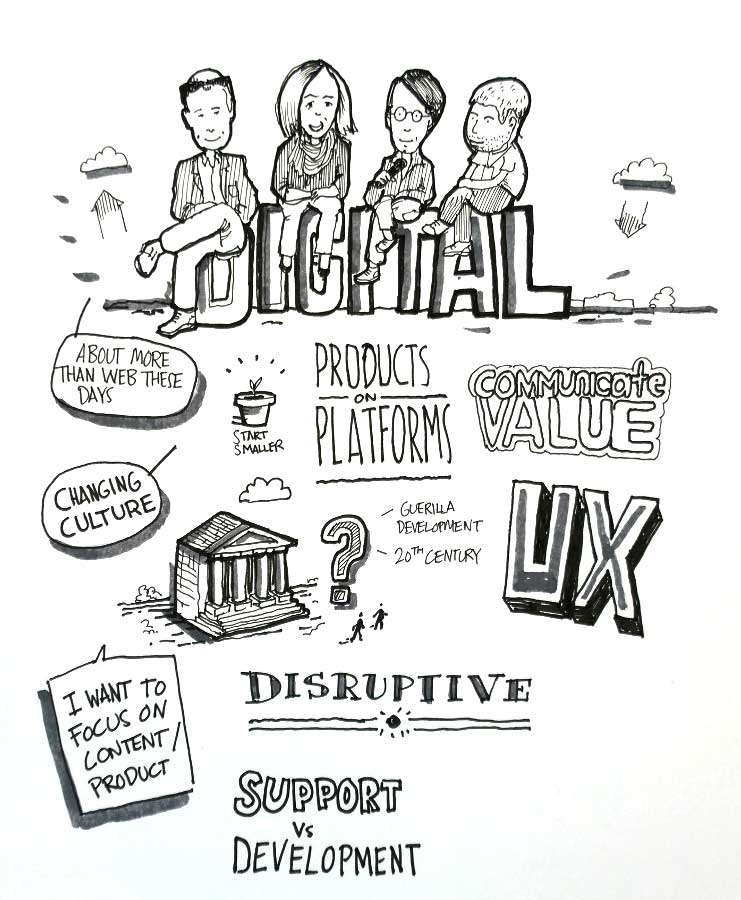 DIGITAL
ABOUT MORE
THAN WEB THESE
DAYS
START
SMALLER
PRODUCTS
ON
PLATFORMS
COMMUNICATE
VALUE
CHANGING
CULTURE
?
GUERILLA
DEVELOPMENT
20TH CENTURY
UX
I WANT TO
FOCUS ON
CONTENT/
PRODUCT
DISRUPTIVE
SUPPORT
Vs
DEVELOPMENT